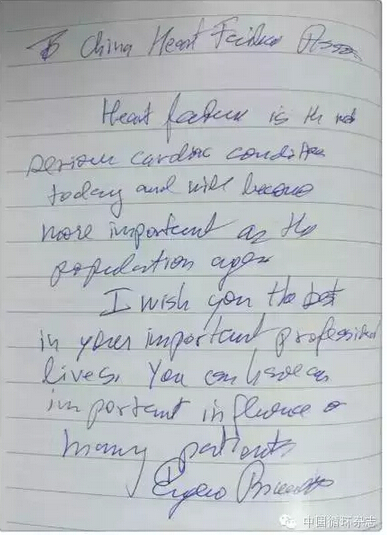 To China Heart Failure Assn
Heart failure is the most
serious cardiac condition
today and will become
more important as the
population ages
I wish you the best
in your important professional
lives. You can have an
important influence on
many patients
Eugene Braunwald
中国循环杂志